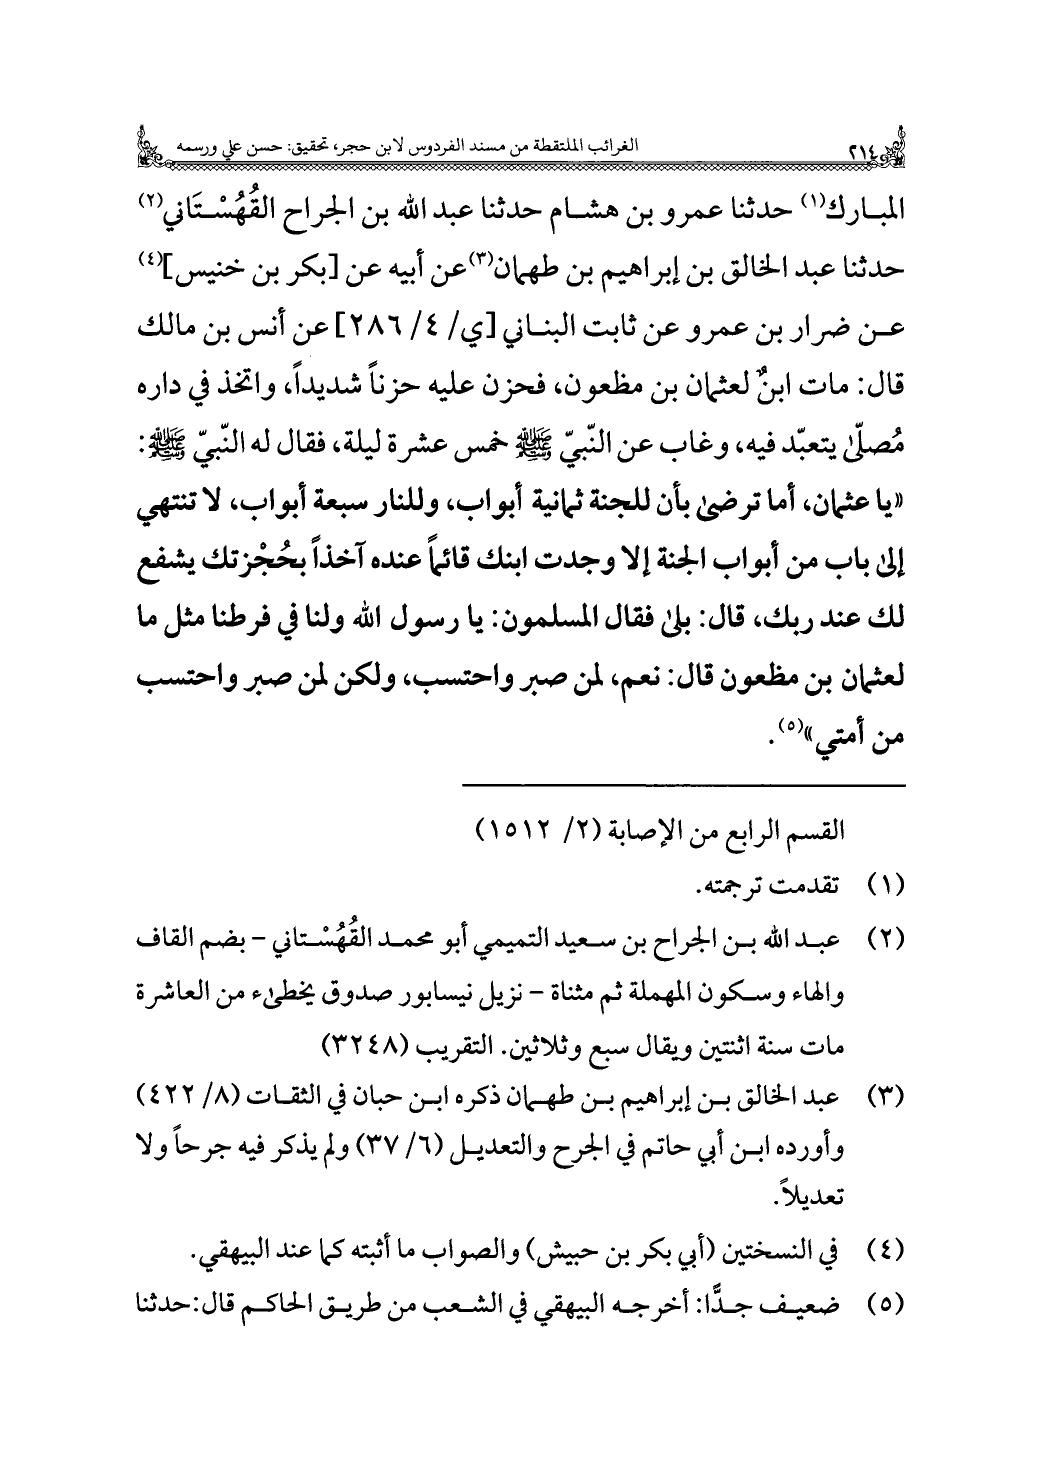 ٢١٤ الغرائب الملتقطة من مسند الفردوس لابن حجر، تحقيق: حسن علي ورسمه
المبارك(١) حدثنا عمرو بن هشام حدثنا عبد الله بن الجراح القُهُسْتَاني(٢)
حدثنا عبد الخالق بن إبراهيم بن طهمان(٣) عن أبيه عن [بكر بن خنيس](٤)
عن ضرار بن عمرو عن ثابت البناني [ي/ ٤/ ٢٨٦] عن أنس بن مالك
قال: مات ابنٌ لعثمان بن مظعون، فحزن عليه حزناً شديداً، واتخذ في داره
مُصلّىٰ يتعبّد فيه، وغاب عن النّبيّ ﷺ خمس عشرة ليلة، فقال له النّبيّ ﷺ:
«يا عثمان، أما ترضىٰ بأن للجنة ثمانية أبواب، وللنار سبعة أبواب، لا تنتهي
إلىٰ باب من أبواب الجنة إلا وجدت ابنك قائماً عنده آخذاً بحُجْزتك يشفع
لك عند ربك، قال: بلىٰ فقال المسلمون: يا رسول الله ولنا في فرطنا مثل ما
لعثمان بن مظعون قال: نعم، لمن صبر واحتسب، ولكن لمن صبر واحتسب
من أمتي»(٥).
القسم الرابع من الإصابة (٢/ ١٥١٢)
(١) تقدمت ترجمته.
(٢) عبد الله بن الجراح بن سعيد التميمي أبو محمد القُهُسْتاني – بضم القاف
والهاء وسكون المهملة ثم مثناة – نزيل نيسابور صدوق يخطىء من العاشرة
مات سنة اثنتين ويقال سبع وثلاثين. التقريب (٣٢٤٨)
(٣) عبد الخالق بن إبراهيم بن طهمان ذكره ابن حبان في الثقات (٨/ ٤٢٢)
وأورده ابن أبي حاتم في الجرح والتعديل (٦/ ٣٧) ولم يذكر فيه جرحاً ولا
تعديلاً.
(٤) في النسختين (أبي بكر بن حبيش) والصواب ما أثبته كما عند البيهقي.
(٥) ضعيف جدًّا: أخرجه البيهقي في الشعب من طريق الحاكم قال: حدثنا